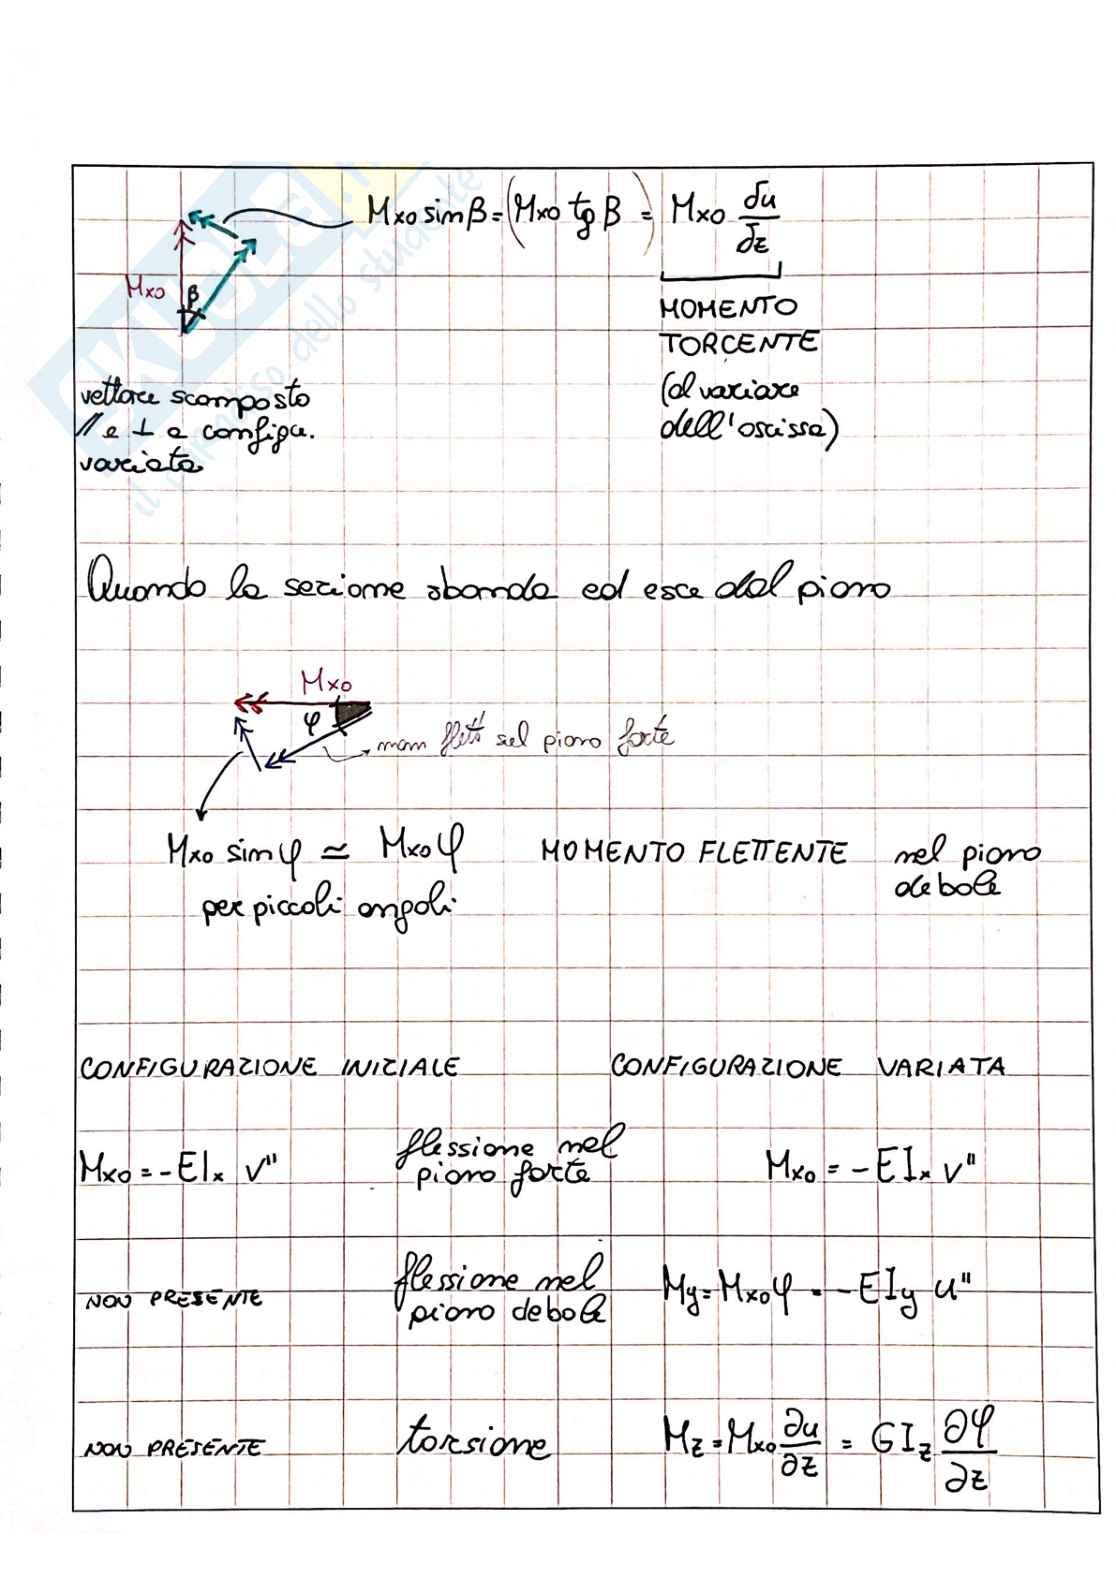 Mxo sinβ = (Mxo tg β) = Mxo δu/δz
Mxo
β
MOMENTO
TORCENTE
(al variare
dell'ascissa)
vettore scomposto
// e ⊥ a configu.
variata
Quando la sezione sbanda ed esce dal piano
Mxo
φ
mom flett sul piano forte
Mxo sinφ ≃ Mxoφ MOMENTO FLETTENTE nel piano
debole
per piccoli angoli
CONFIGURAZIONE INIZIALE CONFIGURAZIONE VARIATA
Mxo = -EIx v'' flessione nel
piano forte Mxo = -EIx v''
NON PRESENTE flessione nel
piano debole My = Mxoφ = -EIy u''
NON PRESENTE torsione Mz = Mxo ∂u/∂z = GIz ∂φ/∂z